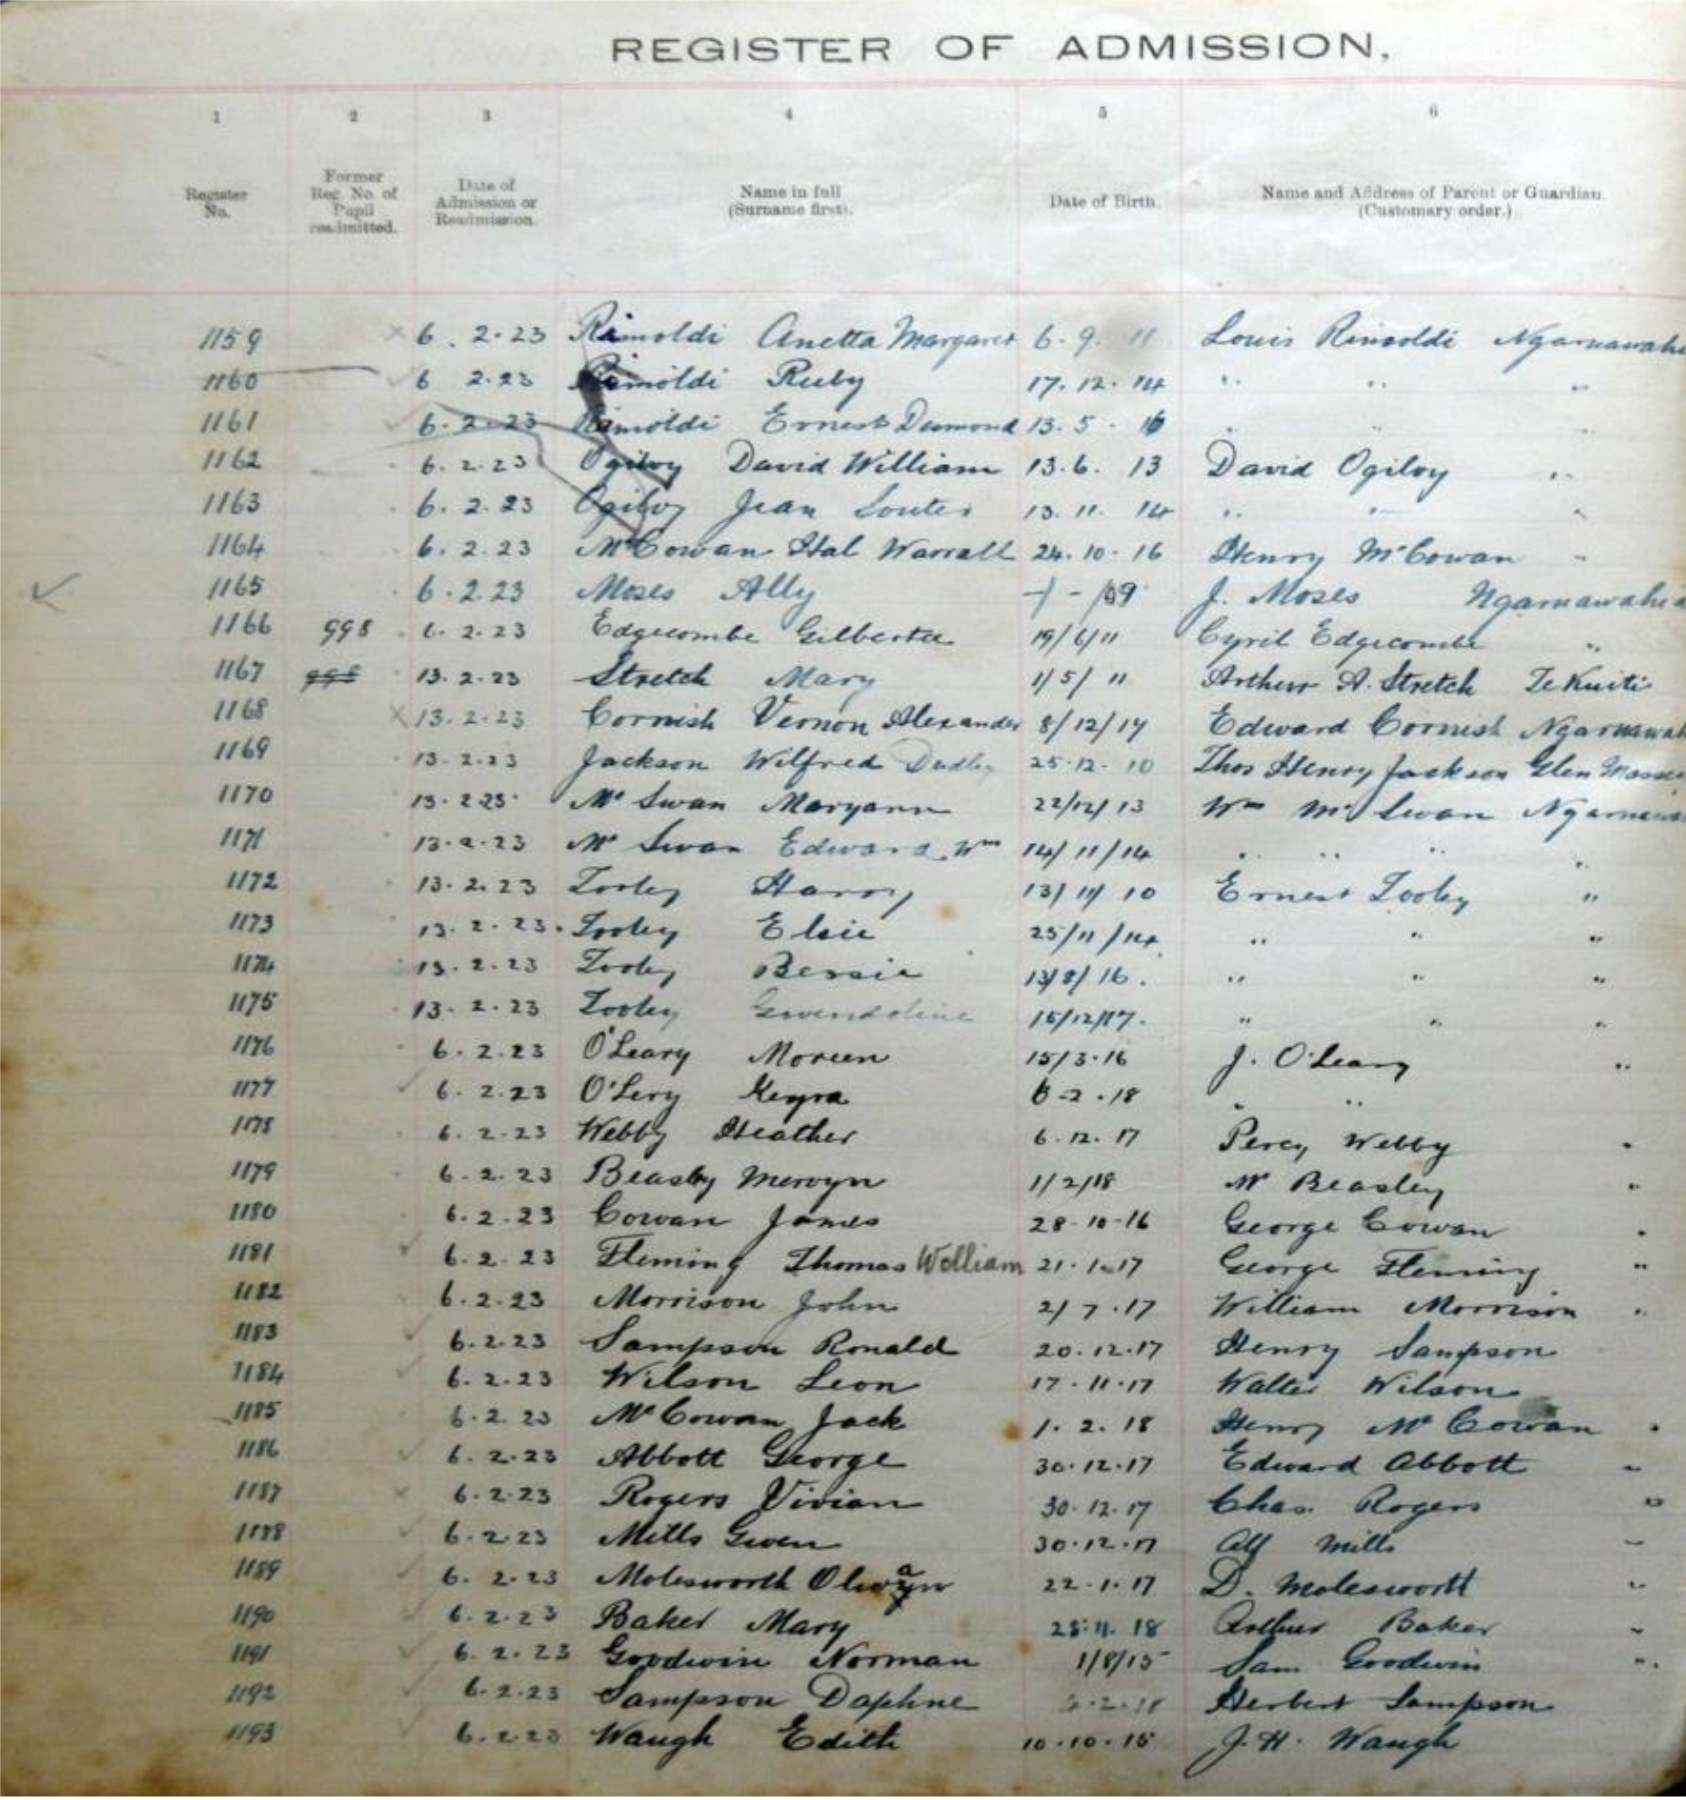 REGISTER OF ADMISSION.
1 2 3 4 5 6
Register No. Former Reg. No. of Pupil readmitted. Date of Admission or Readmission. Name in full (Surname first). Date of Birth. Name and Address of Parent or Guardian. (Customary order.)
1159 × 6. 2.23 Rimoldi Anetta Margaret 6. 9. 11 Louis Rimoldi Ngaruawahi
1160 ✓ 6 2.23 Rimoldi Ruby 17. 12. 14 " " "
1161 ✓ 6. 2.23 Rimoldi Ernest Desmond 13. 5. 16 " " "
1162 6. 2.23 Ogilvy David William 13. 6. 13 David Ogilvy "
1163 6. 2.23 Ogilvy Jean 13. 11. 14 " " "
1164 6. 2.23 McCowan Hal Warrall 24. 10. 16 Henry McCowan "
✓ 1165 6. 2.23 Moses Ally - / - /09 J. Moses Ngaruawahia
1166 998 6. 2.23 Edgecombe Gilberta 19/6/11 Cyril Edgecombe "
1167 998 13. 2.23 Stretch Mary 1/5/11 Arthur A. Stretch Te Kuiti
1168 × 13. 2.23 Cornish Vernon Alexander 8/12/14 Edward Cornish Ngaruawah
1169 13. 2.23 Jackson Wilfred Dudley 25. 12. 10 Thos Henry Jackson Glen Masse
1170 13. 2.23 Mc Swan Maryann 22/12/13 Wm Mc Swan Ngaruawa
1171 13. 2.23 Mc Swan Edward Wm 14/11/14 " " " "
1172 13. 2.23 Tooley Harry 13/11/10 Ernest Tooley "
1173 13. 2.23. Tooley Elsie 25/11/14 " " "
1174 13. 2.23 Tooley Bessie 13/8/16. " " "
1175 13. 2.23 Tooley Gwendoline 15/12/17. " " "
1176 6. 2.23 O'Leary Moreen 15/3.16 J. O'Leary "
1177 ✓ 6. 2.23 O'Lery 6-2.18 " "
1178 6. 2.23 Webby Heather 6. 12. 17 Percy Webby "
1179 6. 2.23 Beasley Mervyn 1/2/18 Mr Beasley "
1180 6. 2.23 Cowan James 28-10-16 George Cowan "
1181 ✓ 6. 2.23 Fleming Thomas William 21. 1.17 George Fleming "
1182 6. 2.23 Morrison John 2/7.17 William Morrison "
1183 ✓ 6. 2.23 Sampson Ronald 20. 12.17 Henry Sampson
1184 ✓ 6. 2.23 Wilson Leon 17. 11.17 Walter Wilson
1185 6. 2.23 McCowan Jack 1. 2. 18 Henry McCowan "
1186 ✓ 6. 2.23 Abbott George 30. 12.17 Edward Abbott "
1187 × 6. 2.23 Rogers Vivian 30. 12. 17 Chas. Rogers "
1188 ✓ 6. 2.23 Mills Gwen 30. 12. 17 Alf Mills "
1189 ✓ 6. 2.23 Molesworth 22. 1. 17 D. Molesworth "
1190 ✓ 6. 2.23 Baker Mary 25. 11. 18 Arthur Baker "
1191 ✓ 6. 2.23 Goodwin Norman 1/8/15 Sam Goodwin "
1192 ✓ 6. 2.23 Sampson Daphne 2.18 Herbert Sampson
1193 ✓ 6. 2.23 Waugh Edith 10. 10. 15 J. H. Waugh